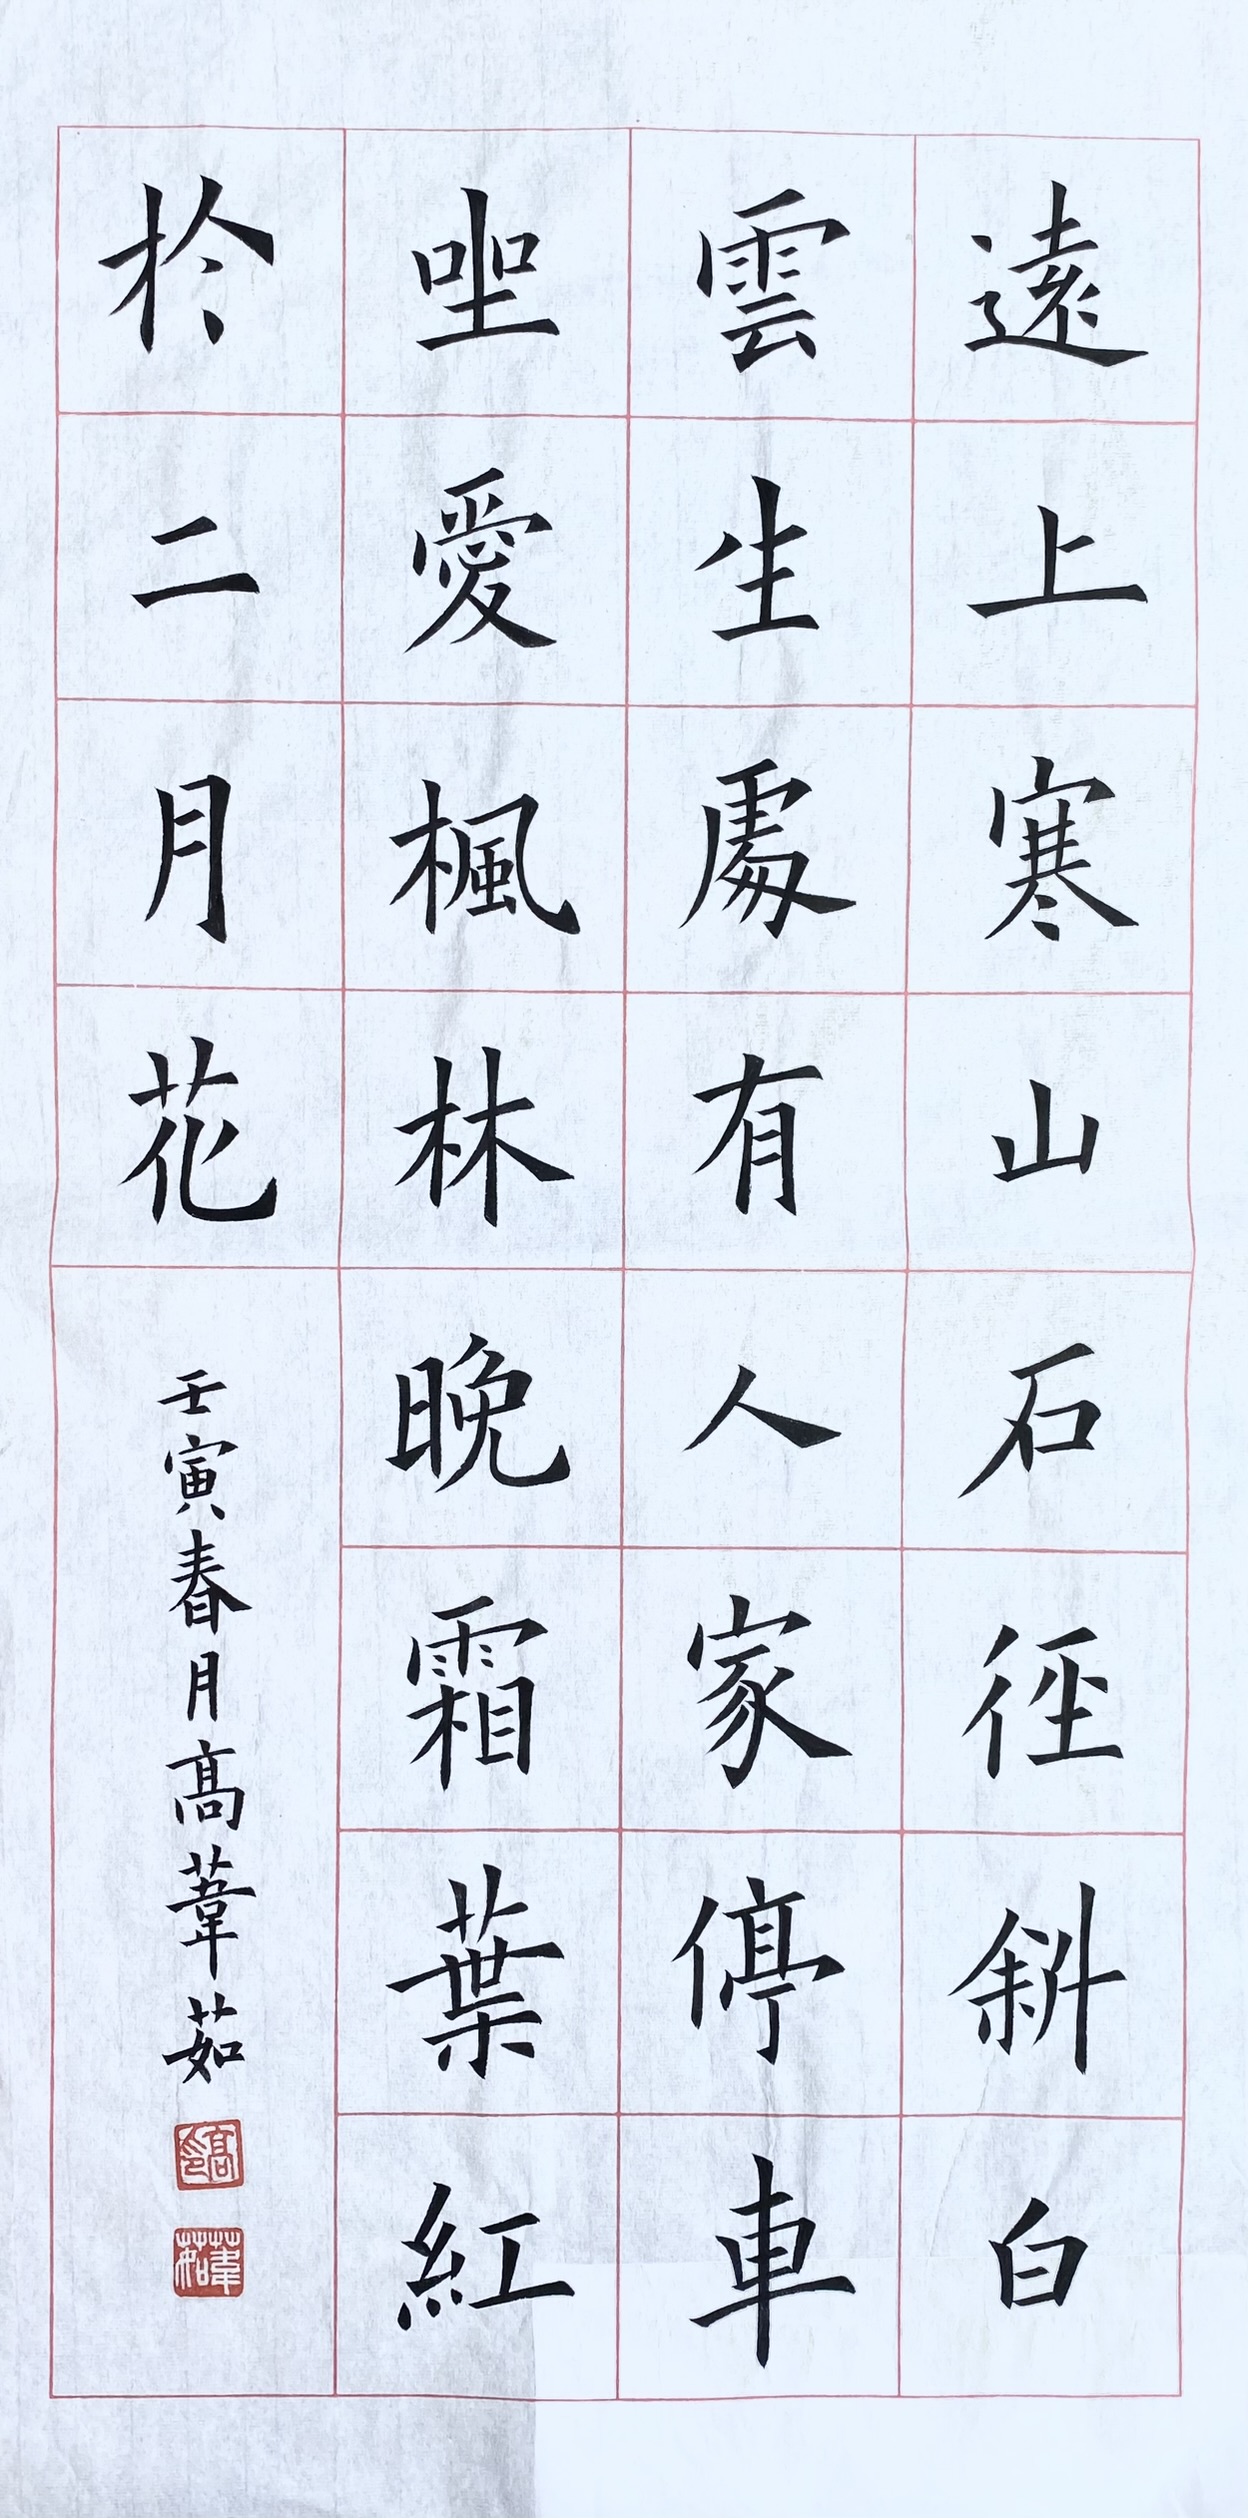 遠上寒山石徑斜白
雲生處有人家停車
坐愛楓林晚霜葉紅
於二月花
壬寅春月高葦茹
高印
葦茹